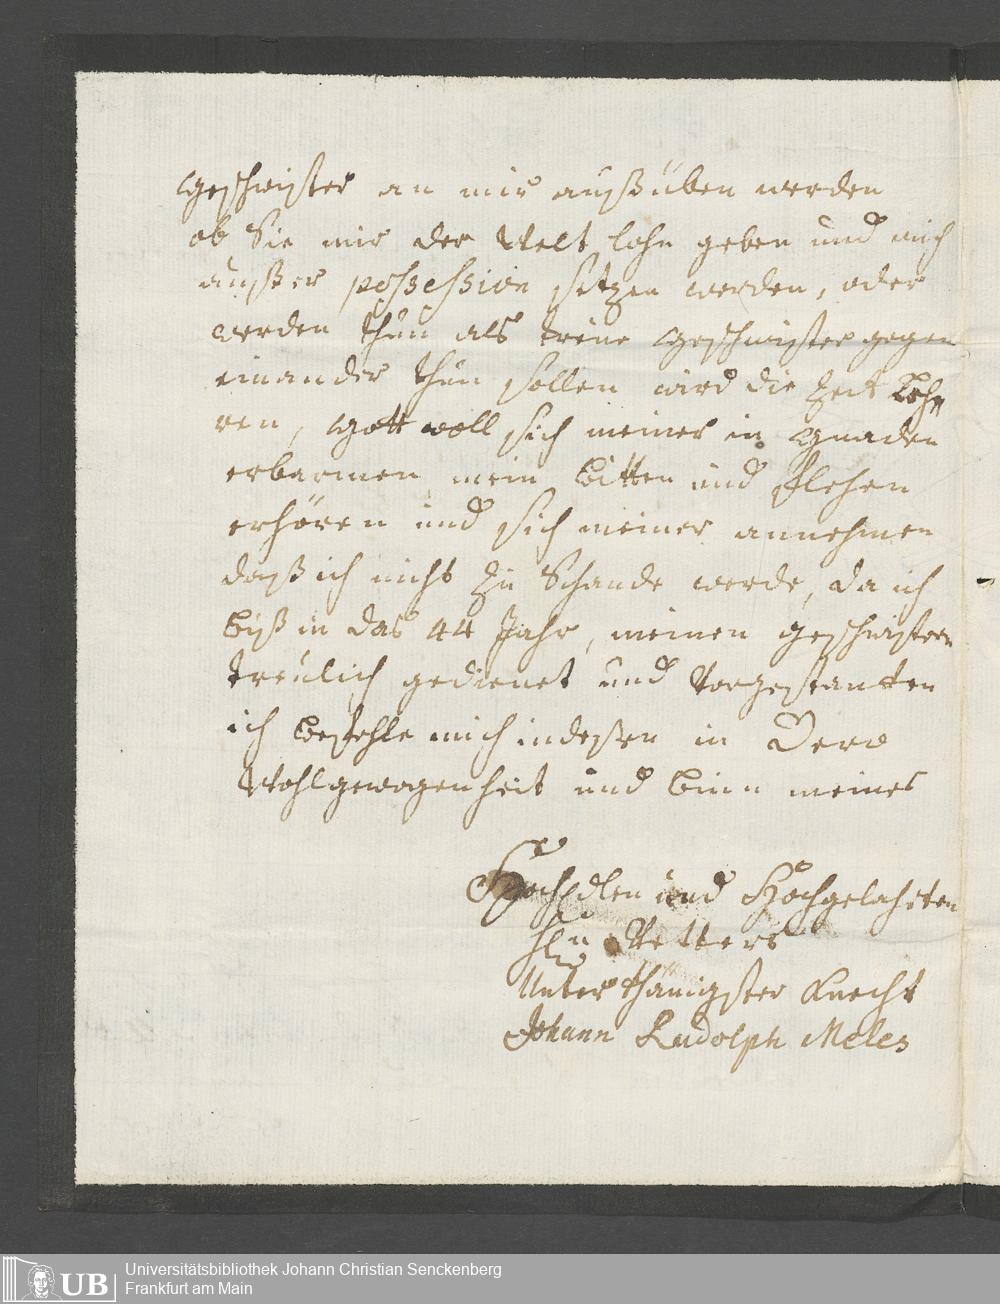 Geschwister an mir außüben werden
ob Sie mir der Welt lohn geben und mich
außer possession setzen werden, oder
werden thun als treue Geschwister gegen
einander thun sollen wird die Zeit Leh
ren, Gott woll sich meiner in Gnaden
erbarmen mein Bitten und Flehen
erhören und sich meiner annehmen
daß ich nicht zu Schande werde, da ich
biß in das 44 Jahr, meinen geschwistern
treulich gedienet und Vorgestantten
ich befehle mich indeßen in Dero
Wohlgewogenheit und binn meines
HochEdlen und Hochgelahrten
Hln Vetters
Unterthänigster Knecht
Johann Rudolph Meles
UB Universitätsbibliothek Johann Christian Senckenberg
Frankfurt am Main